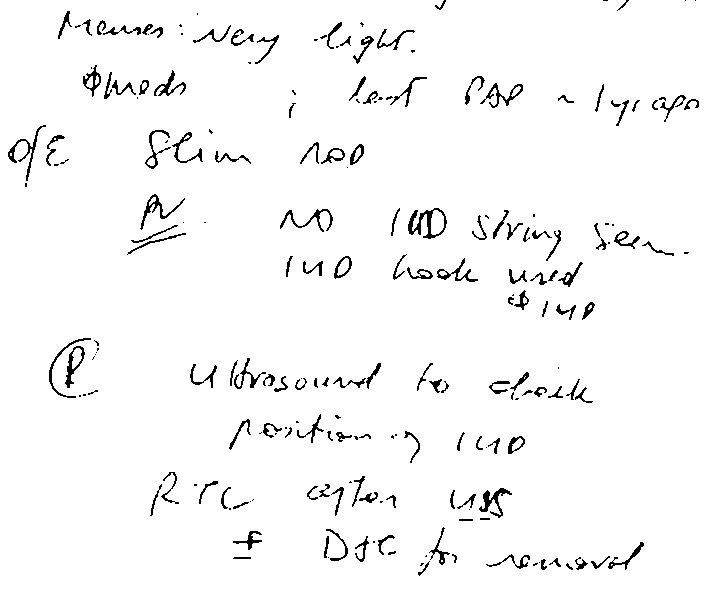 Menses: very light.
∅meds ; last PAP ~ 1 yr ago
O/E Slim NAD
PV NO IUD string seen.
IUD hook used
∅ IUD
Ⓟ Ultrasound to check
position of IUD
RTC after USS
± D&C for removal